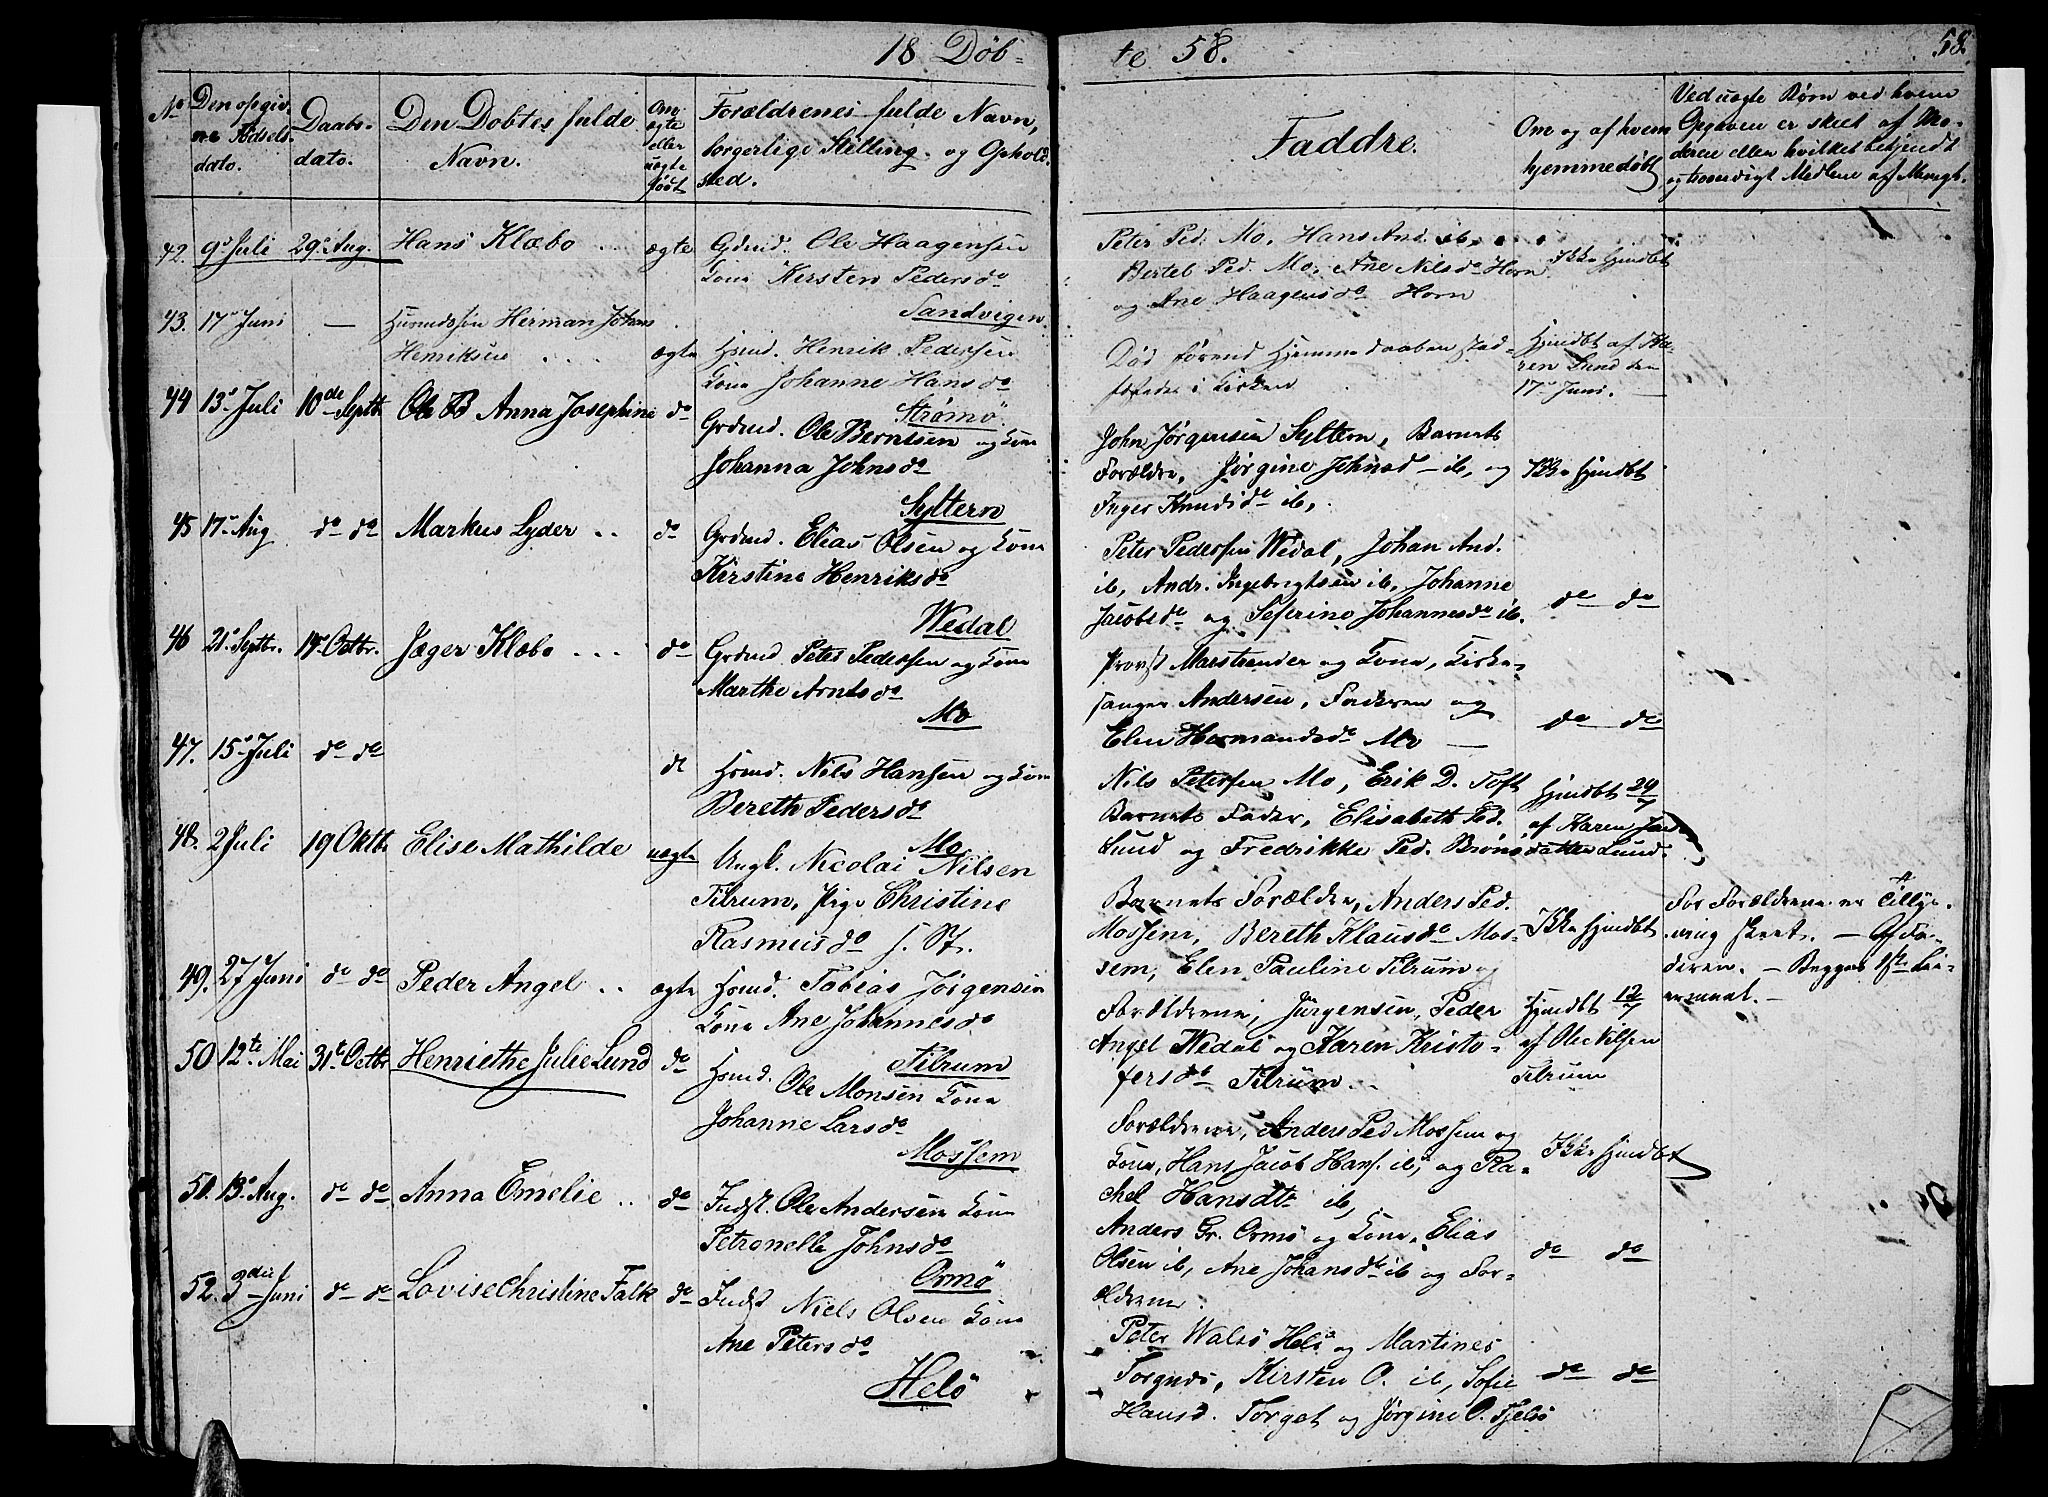 18 Døb-
te 58.
58.
No
Den opgiv.
ne Fødsels
dato.
Daabs-
dato.
Den Døbtes fulde
Navn.
Om
ægte
eller
uægte
født
Forældrenes fulde Navn,
borgerlige Stilling og Ophold.
sted.
Faddre.
Om og af hvem
hjemmedøbt
Ved uægte Børn ved hvem
Opgaven er skeet af Mo-
deren eller hvilket bekjendt
og troværdigt Medlem af Menigh.
42. 9de Juli 29de Aug. Hans Klæbo ægte
Grdmd. Ole Haagensen
Kone Kirsten Pedersda
Sandvigen
Peter Ped. Mo, Hans And. ib,
Bertel Ped. Mo, Ane Nilsda Horn
og Ane Haagensda Horn
Ikke hjmdbt
43. 17de Juni — Husmdssøn Herman Johans
Henriksen ægte
Hsmd. Henrik Pedersen
Kone Johanne Hansda
Strømø
Død førend Hjemmedaaben stad-
fæstedes i Kirken
Hjmdbt af Ka-
ren Lund den
17de Juni.
44 13de Juli 10de Septb. Ole B Anna Josephine do
Grdmd. Ole Berntsen og Kone
Johanna Johnsda
Syltern
John Jørgensen Syltern, Barnets
Forældre, Jørgine Johnsd ib, og
Inger Knudsda ib,
Ikke hjmdbt
45 17de Aug do do Markus Lyder .. do
Grdmd. Elias Olsen og Kone
Kirstine Henriksda
Wedal
Peter Pedersen Wedal, Johan And.
ib, Andr. Ingebrigtsen ib, Johanne
Jacobsda og Seferine Johannesda ib.
do do
46 21de Septbr. 19de Octbr. Jæger Klæbo ... do
Grdmd Peter Pedersen og Kone
Marthe Arntsda
Mo
Provst Marstrander og Kone, Kirke-
sanger Andersen, Faderen og
Elen Hermandsda Mo —
do do
47. 15de Juli do do do
Hsmd. Nils Hansen og Kone
Bereth Pedersda
Mo
Nils Petersen Mo, Erik D. Toft
Barnets Fader, Elisabeth Ped.
Lund og Fredrikke Ped. Brøns
Hjmdbt 29/7
af Karen Jans
datter Lund.
48. 2 Juli 19 Oktbr Elise Mathilde uægte
Ungk. Nicolai Nilsen
Tilrum, Pige Christine
Rasmusda s. St.
Barnets Forældre, Anders Ped.
Mossem, Bereth Klausda Mos-
sem, Elen Pauline Tilrum og
Ikke hjmdbt
For Forældrene er Tillys-
ning skeet. — Af Fa-
deren. — Begges 1ste Lei-
ermaal. —
49. 27 Juni do do Peder Angel .. ægte
Hsmd. Tobias Jørgensen
Kone Ane Johannesda
Tilrum
Forældrene, Jørgensen, Peder
Angel Wedal og Karen Kristo-
fersda Tilrum.
Hjmdbt 12/7
af Ole Nilsen
Tilrum
50 12te Mai 31te Octbr Henriethe Julie Lund do
Hsmd. Ole Monsen Kone
Johanne Larsda
Mossem
Forældrene, Anders Ped Mossem og
Kone, Hans Jacob Hans. ib, og Ra-
chel Hansdtr ib,
Ikke hjmdbt
51. 13de Aug. do do Anna Emelie .. do
Indst. Ole Andersen Kone
Petronelle Johnsda
Ormø
Anders Gr. Ormø og Kone, Elias
Olsen ib, Ane Johansda ib og For-
ældrene.
do do
52. 3die Juni do do Lovise Christine Falk do
Indst Niels Olsen Kone
Ane Petersda
Helø
Peter Walsø Helø og Martines
Torgnes, Kirsten O. ib, Sofie
Hansd. Torget og Jørgine O. Hjelsø
do do